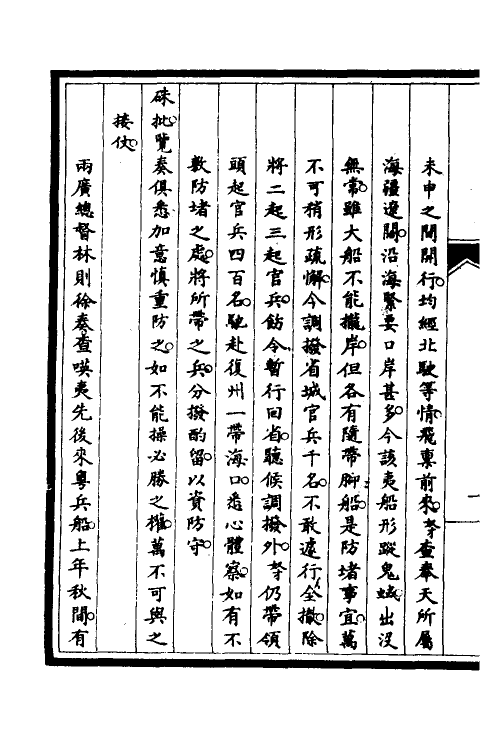 未申之間開行。均經北駛等情。飛稟前來。奴才查奉天所屬
海疆遼闊。沿海緊要口岸甚多。今該夷船形蹤鬼蜮。出沒
無常。雖大船不能攏岸。但各有隨帶腳船。是防堵事宜。萬
不可稍形疏懈。今調撥省城官兵千名。不敢遽行全撤。除
將二起三起官兵。飭令暫行回省。聽候調撥外。奴才仍帶領
頭起官兵四百名。馳赴復州一帶海口。悉心體察。如有不
敷防堵之處。將所帶之兵。分撥酌留。以資防守。
硃批。覽奏俱悉。加意慎重防之。如不能操必勝之權。萬不可與之
接仗。
兩廣總督林則徐奏。查㗸夷先後來粵兵船。上年秋間。有
一